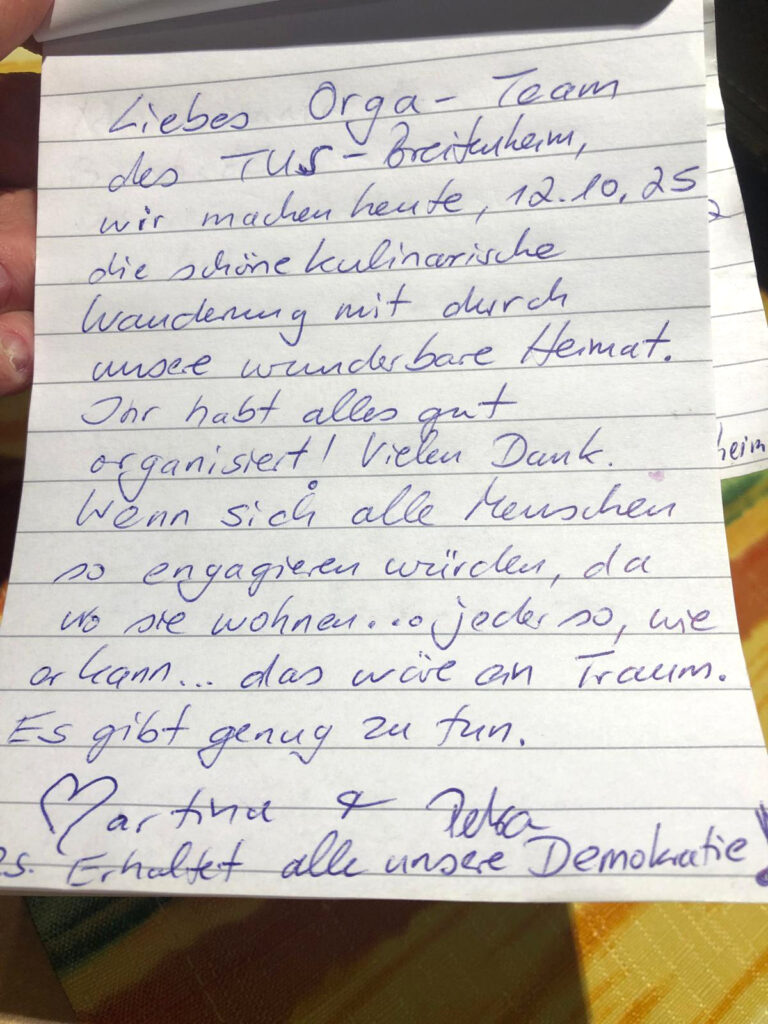 Liebes Orga-Team
des TUS-Breitenheim,
wir machen heute, 12.10.25
die schöne kulinarische
Wanderung mit durch
unsere wunderbare Heimat.
Ihr habt alles gut
organisiert! Vielen Dank.
Wenn sich alle Menschen
so engagieren würden, da
wo sie wohnen... jeder so, wie
er kann... das wäre ein Traum.
Es gibt genug zu tun.
Martina & Petra
Ps. Erhaltet alle unsere Demokratie!
heim